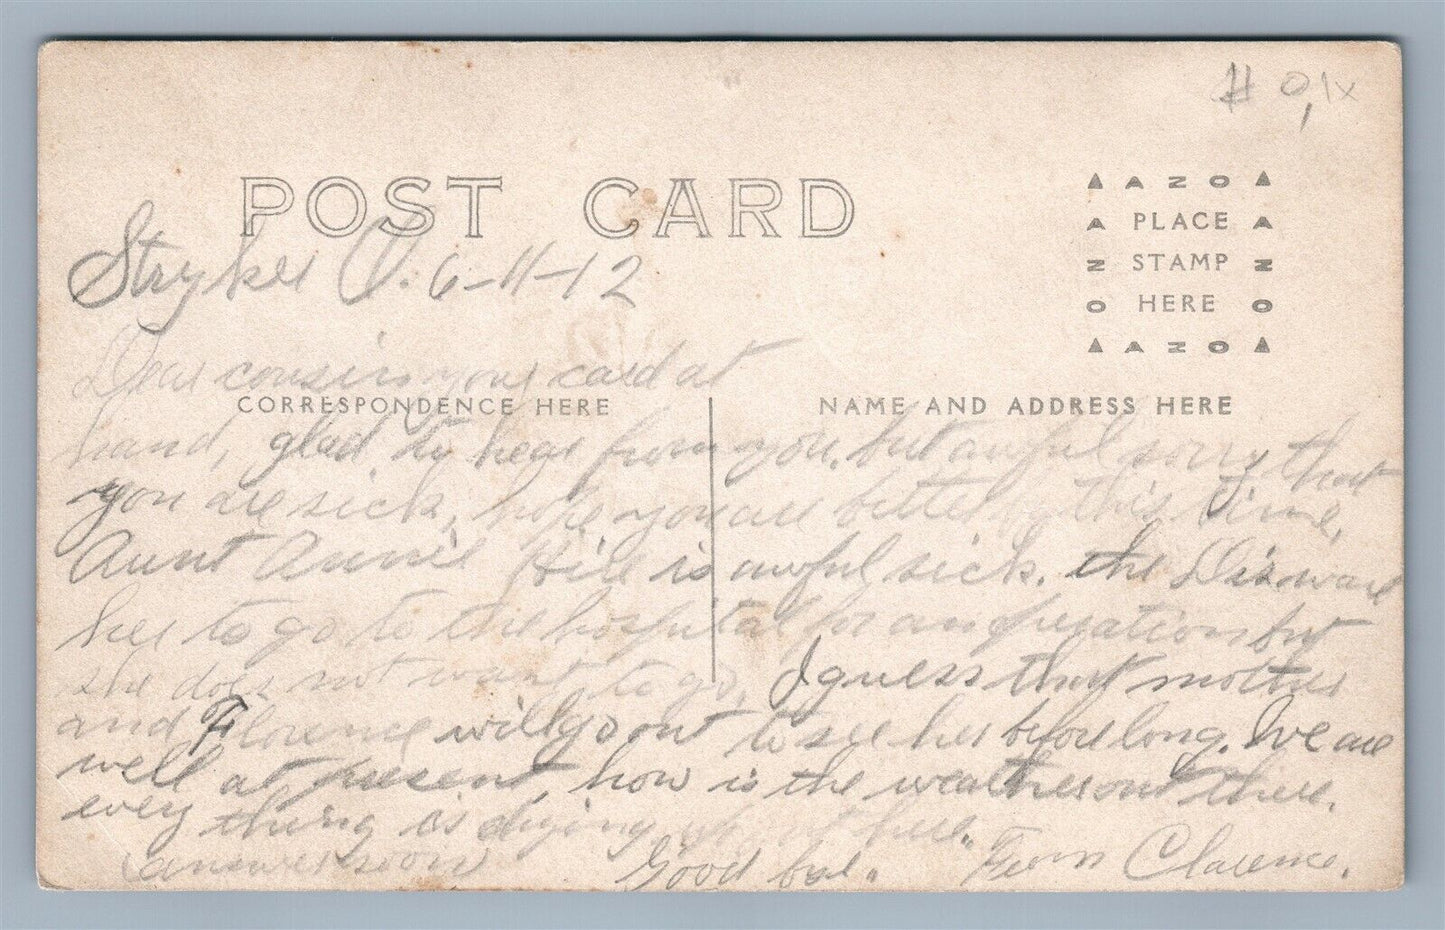 # 0,1x
POST CARD
AZO
PLACE
STAMP
HERE
AZO
Stryker O. 6-11-12
Dear cousin your card at
CORRESPONDENCE HERE
NAME AND ADDRESS HERE
hand, glad to hear from you, but awful sorry that
you are sick, hope you are better by this time.
Aunt Annie is awful sick. the
her to go to the hospital for an operation but
she does not want to go, I guess that mother
and Florence will go out to see her before long. We are
well at present, how is the weather out there.
every thing is drying up out here.
answer soon Good bye. From Clarence.